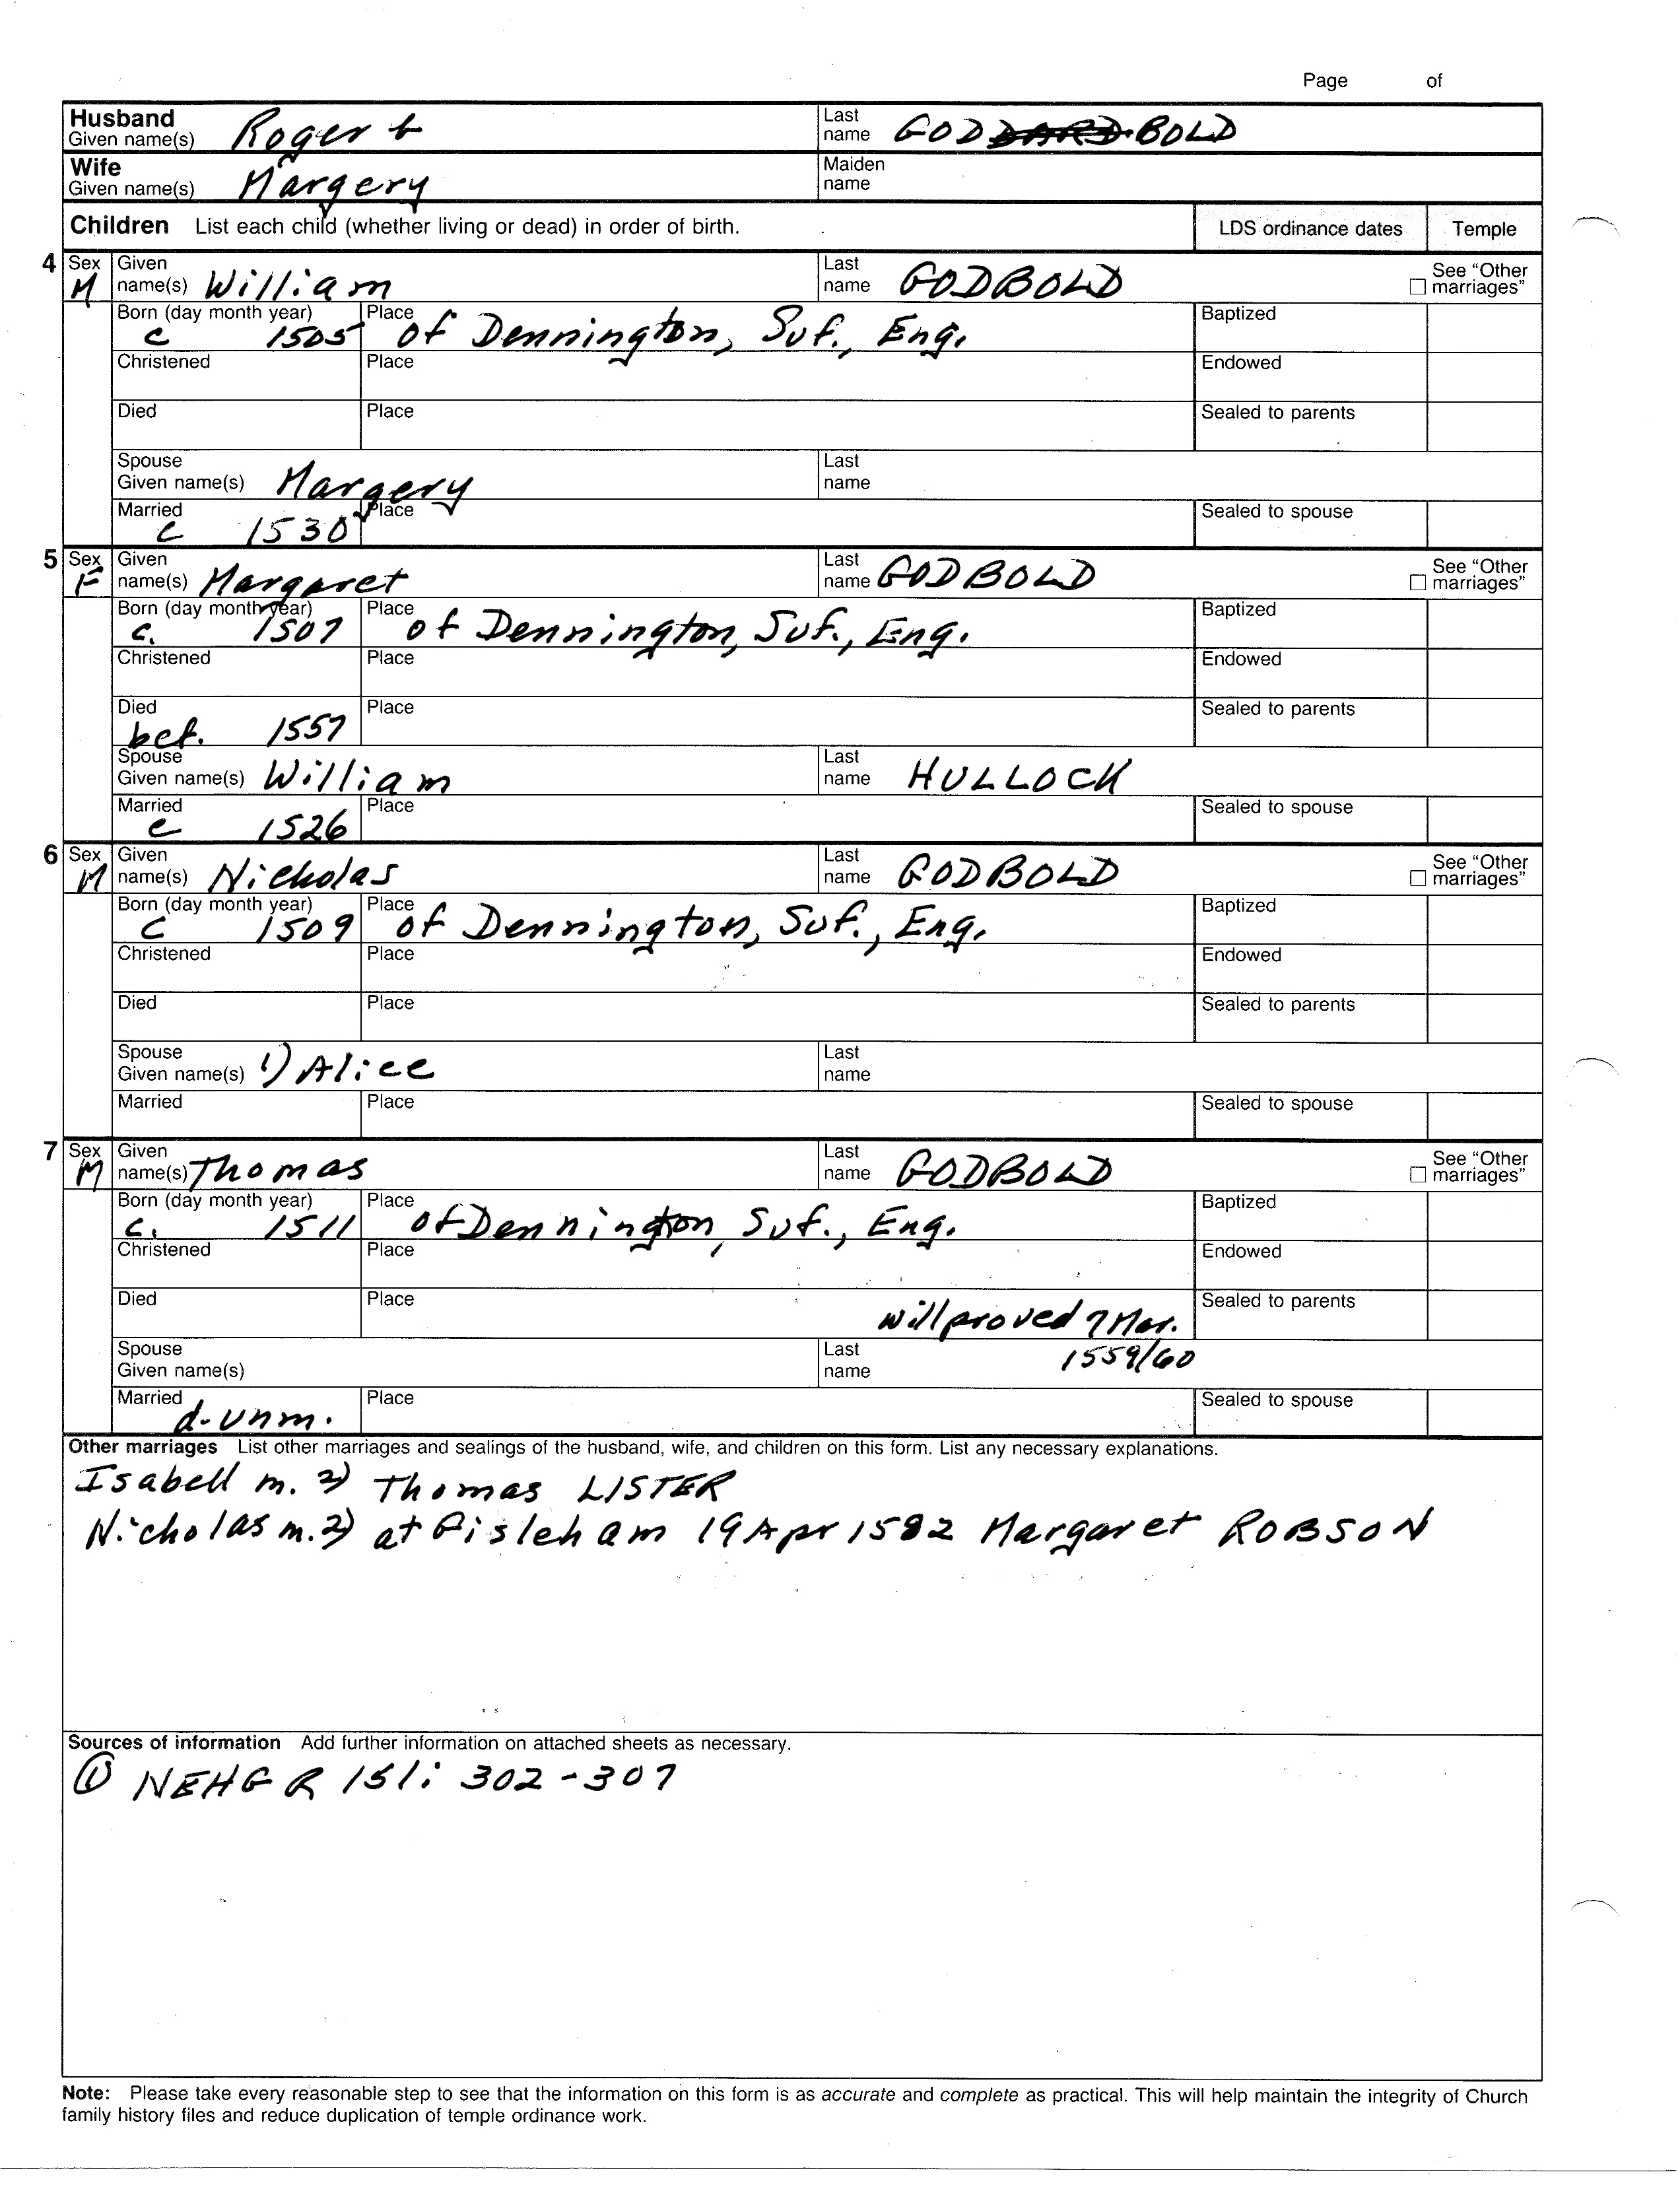 Page of
Husband Given name(s) Roger + Last name GODBOLD
Wife Given name(s) Margery Maiden name
Children List each child (whether living or dead) in order of birth. LDS ordinance dates Temple
4 Sex M Given name(s) William Last name GODBOLD See "Other marriages"
Born (day month year) c 1505 Place of Dennington, Suf., Eng. Baptized
Christened Place Endowed
Died Place Sealed to parents
Spouse Given name(s) Margery Last name
Married c 1530 Place Sealed to spouse
5 Sex F Given name(s) Margaret Last name GODBOLD See "Other marriages"
Born (day month year) c. 1507 Place of Dennington, Suf., Eng. Baptized
Christened Place Endowed
Died bef. 1557 Place Sealed to parents
Spouse Given name(s) William Last name HULLOCK
Married c 1526 Place Sealed to spouse
6 Sex M Given name(s) Nicholas Last name GODBOLD See "Other marriages"
Born (day month year) c 1509 Place of Dennington, Suf., Eng. Baptized
Christened Place Endowed
Died Place Sealed to parents
Spouse Given name(s) 1) Alice Last name
Married Place Sealed to spouse
7 Sex M Given name(s) Thomas Last name GODBOLD See "Other marriages"
Born (day month year) c. 1511 Place of Dennington, Suf., Eng. Baptized
Christened Place Endowed
Died Place will proved 7 Mar. Sealed to parents
Spouse Given name(s) Last name 1559/60
Married d. unm. Place Sealed to spouse
Other marriages List other marriages and sealings of the husband, wife, and children on this form. List any necessary explanations.
Isabell m. 2) Thomas LISTER
Nicholas m. 2) at 19 Apr 1582 Margaret ROBSON
Sources of information Add further information on attached sheets as necessary.
① NEHGR 151: 302-307
Note: Please take every reasonable step to see that the information on this form is as accurate and complete as practical. This will help maintain the integrity of Church
family history files and reduce duplication of temple ordinance work.